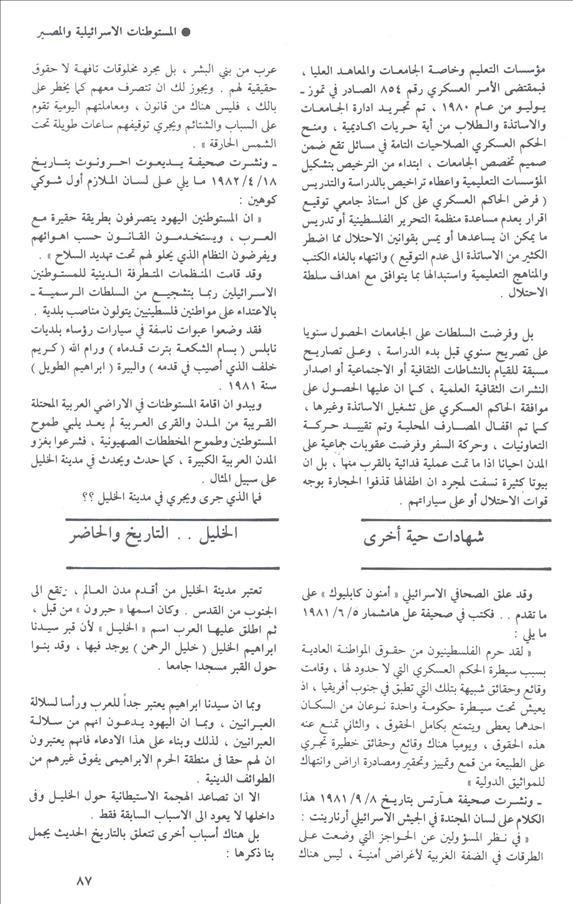 ● المستوطنات الاسرائيلية والمصير
مؤسسات التعليم وخاصة الجامعات والمعاهد العليا ،
فبمقتضى الأمر العسكري رقم ٨٥٤ الصادر في تموز ـ
يوليو من عام ١٩٨٠ ، تم تجريد ادارة الجامعات
والاساتذة والطلاب من أية حريات اكاديمية ، ومنح
الحكم العسكري الصلاحيات التامة في مسائل تقع ضمن
صميم تخصص الجامعات ، ابتداء من الترخيص بتشكيل
المؤسسات التعليمية واعطاء تراخيص بالدراسة والتدريس
( فرض الحاكم العسكري على كل استاذ جامعي توقيع
اقرار بعدم مساعدة منظمة التحرير الفلسطينية أو تدريس
ما يمكن ان يساعدها أو يمس بقوانين الاحتلال مما اضطر
الكثير من الاساتذة الى عدم التوقيع ) وانتهاء بالغاء الكتب
والمناهج التعليمية واستبدالها بما يتوافق مع اهداف سلطة
الاحتلال .
بل وفرضت السلطات على الجامعات الحصول سنويا
على تصريح سنوي قبل بدء الدراسة ، وعلى تصاريح
مسبقة للقيام بالنشاطات الثقافية أو الاجتماعية أو اصدار
النشرات الثقافية العلمية ، كما ان عليها الحصول على
موافقة الحاكم العسكري على تشغيل الاساتذة وغيرها ،
كما تم اقفال المصارف المحلية وتم تقييد حركة
التعاونيات ، وحركة السفر وفرضت عقوبات جماعية على
المدن احيانا اذا ما تمت عملية فدائية بالقرب منها ، بل ان
بيوتا كثيرة نسفت لمجرد ان اطفالها قذفوا الحجارة بوجه
قوات الاحتلال أو على سياراتهم .
شهادات حية أخرى
وقد علق الصحافي الاسرائيلي « أمنون كابليوك » على
ما تقدم . . فكتب في صحيفة عل هامشمار ١٩٨١/٦/٥
ما يلي :
« لقد حرم الفلسطينيون من حقوق المواطنة العادية
بسبب سيطرة الحكم العسكري التي لا حدود لها ، وقامت
وقائع وحقائق شبيهة بتلك التي تطبق في جنوب أفريقيا ، اذ
يعيش تحت سيطرة حكومة واحدة نوعان من السكان
احدهما يعطى ويتمتع بكامل الحقوق ، والثاني تمنع عنه
هذه الحقوق ، ويوميا هناك وقائع وحقائق خطيرة تجري
على الطبيعة من قمع وتمييز وتحقير ومصادرة اراض وانتهاك
للمواثيق الدولية »
ـ ونشرت صحيفة هآرتس بتاريخ ١٩٨١/٩/٨ هذا
الكلام على لسان المجندة في الجيش الاسرائيلي أرنارينت :
« في نظر المسؤولين عن الحواجز التي وضعت على
الطرقات في الضفة الغربية لأغراض أمنية ، ليس هناك
عرب من بني البشر ، بل مجرد مخلوقات تافهة لا حقوق
حقيقية لهم . ويجوز لك ان تتصرف معهم كما يخطر على
بالك ، فليس هناك من قانون ، ومعاملتهم اليومية تقوم
على السباب والشتائم ويجري توقيفهم ساعات طويلة تحت
الشمس الحارقة » .
ـ ونشرت صحيفة يديعوت احرونوت بتاريخ
١٩٨٢/٤/١٨ ما يلي على لسان الملازم أول شوكي
كوهين :
« ان المستوطنين اليهود يتصرفون بطريقة حقيرة مع
العرب ، ويستخدمون القانون حسب اهوائهم
ويفرضون النظام الذي يحلو لهم تحت تهديد السلاح » .
وقد قامت المنظمات المتطرفة الدينية للمستوطنين
الاسرائيلين ربما بتشجيع من السلطات الرسمية ـ
بالاعتداء على مواطنين فلسطينيين يتولون مناصب بلدية .
فقد وضعوا عبوات ناسفة في سيارات رؤساء بلديات
نابلس ( بسام الشكعة بترت قدماه ) ورام الله ( كريم
خلف الذي أصيب في قدمه ) والبيرة ( ابراهيم الطويل )
سنة ١٩٨١ .
ويبدو ان اقامة المستوطنات في الاراضي العربية المحتلة
القريبة من المدن والقرى العربية لم يعد يلبي طموح
المستوطنين وطموح المخططات الصهيونية ، فشرعوا بغزو
المدن العربية الكبيرة ، كما حدث ويحدث في مدينة الخليل
على سبيل المثال .
فما الذي جرى ويجري في مدينة الخليل ؟؟
الخليل . . التاريخ والحاضر
تعتبر مدينة الخليل من أقدم مدن العالم ، تقع الى
الجنوب من القدس . وكان اسمها « حبرون » من قبل ،
ثم اطلق عليها العرب اسم « الخليل » لأن قبر سيدنا
ابراهيم الخليل ( خليل الرحمن ) يوجد فيها ، وقد بنوا
حول القبر مسجدا جامعا .
وبما ان سيدنا ابراهيم يعتبر جداً للعرب ورأسا لسلالة
العبرانيين ، وبما ان اليهود يدعون انهم من سلالة
العبرانيين ، لذلك وبناء على هذا الادعاء فانهم يعتبرون
ان لهم حقا في منطقة الحرم الابراهيمى يفوق غيرهم من
الطوائف الدينية .
الا ان تصاعد الهجمة الاستيطانية حول الخليل وفى
داخلها لا يعود الى الاسباب السابقة فقط .
بل هناك أسباب أخرى تتعلق بالتاريخ الحديث يجمل
بنا ذكرها :
٨٧